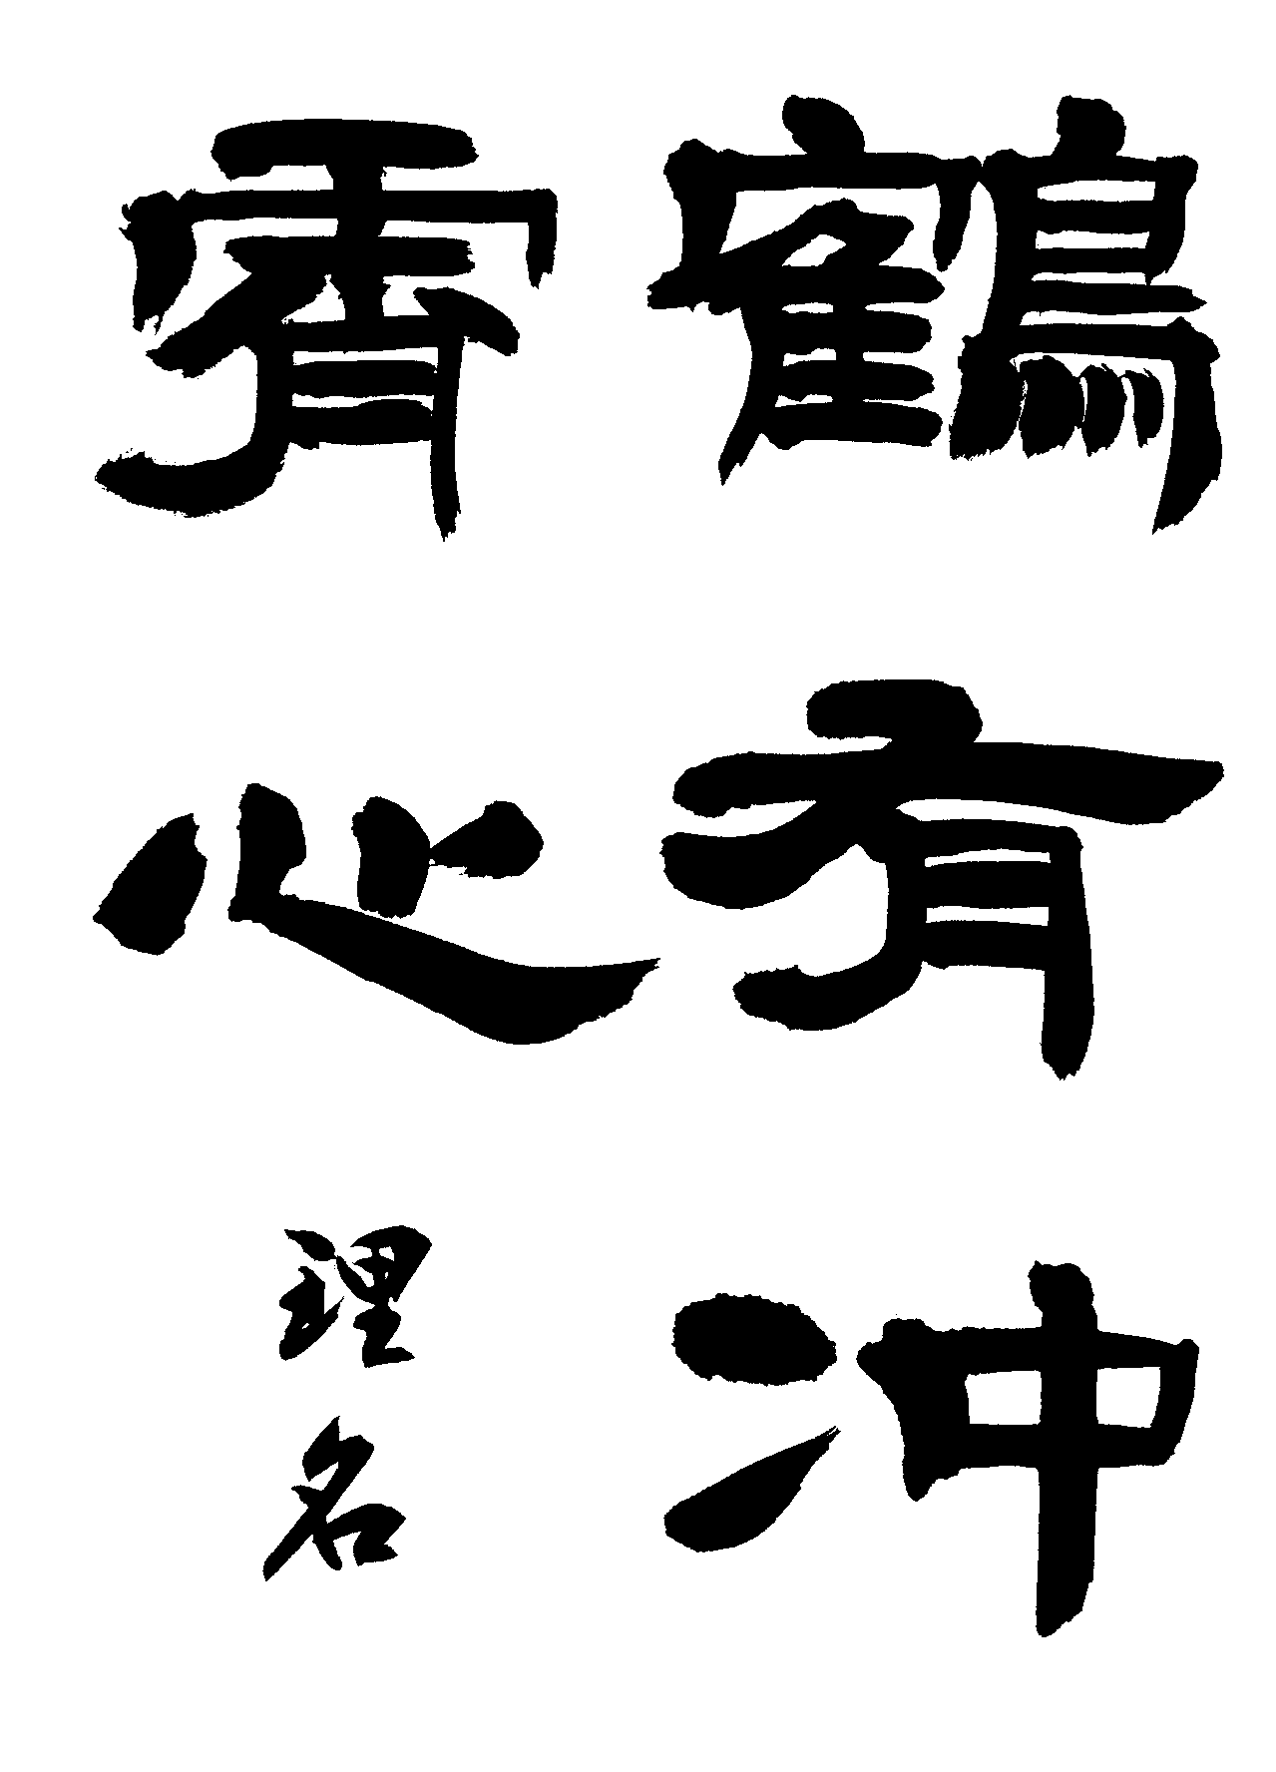 鶴有冲
霄心
理名